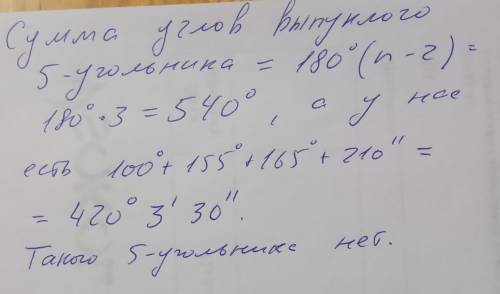 Сумма углов выпуклого
5-угольника = 180° (n-2) =
180° · 3 = 540°, а у нас
есть 100° + 155° + 165° + 210'' =
= 420° 3' 30''.
Такого 5-угольника нет.